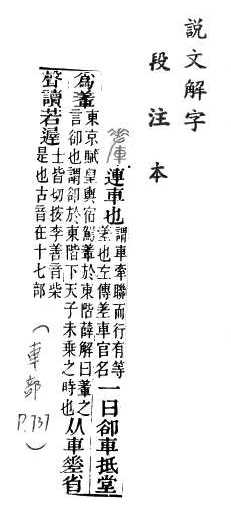 說文解字
段注本
連車也 謂車牽聯而行有等
差也左傳差車官名
一曰卻車抵堂
為
東京賦皇輿宿駕 於東階薛解曰 之
言卻也謂卻於東階下天子未乘之時也
从車 省
聲讀若遟
士皆切按李善音柴
是也古音在十七部
(車部 P.737)